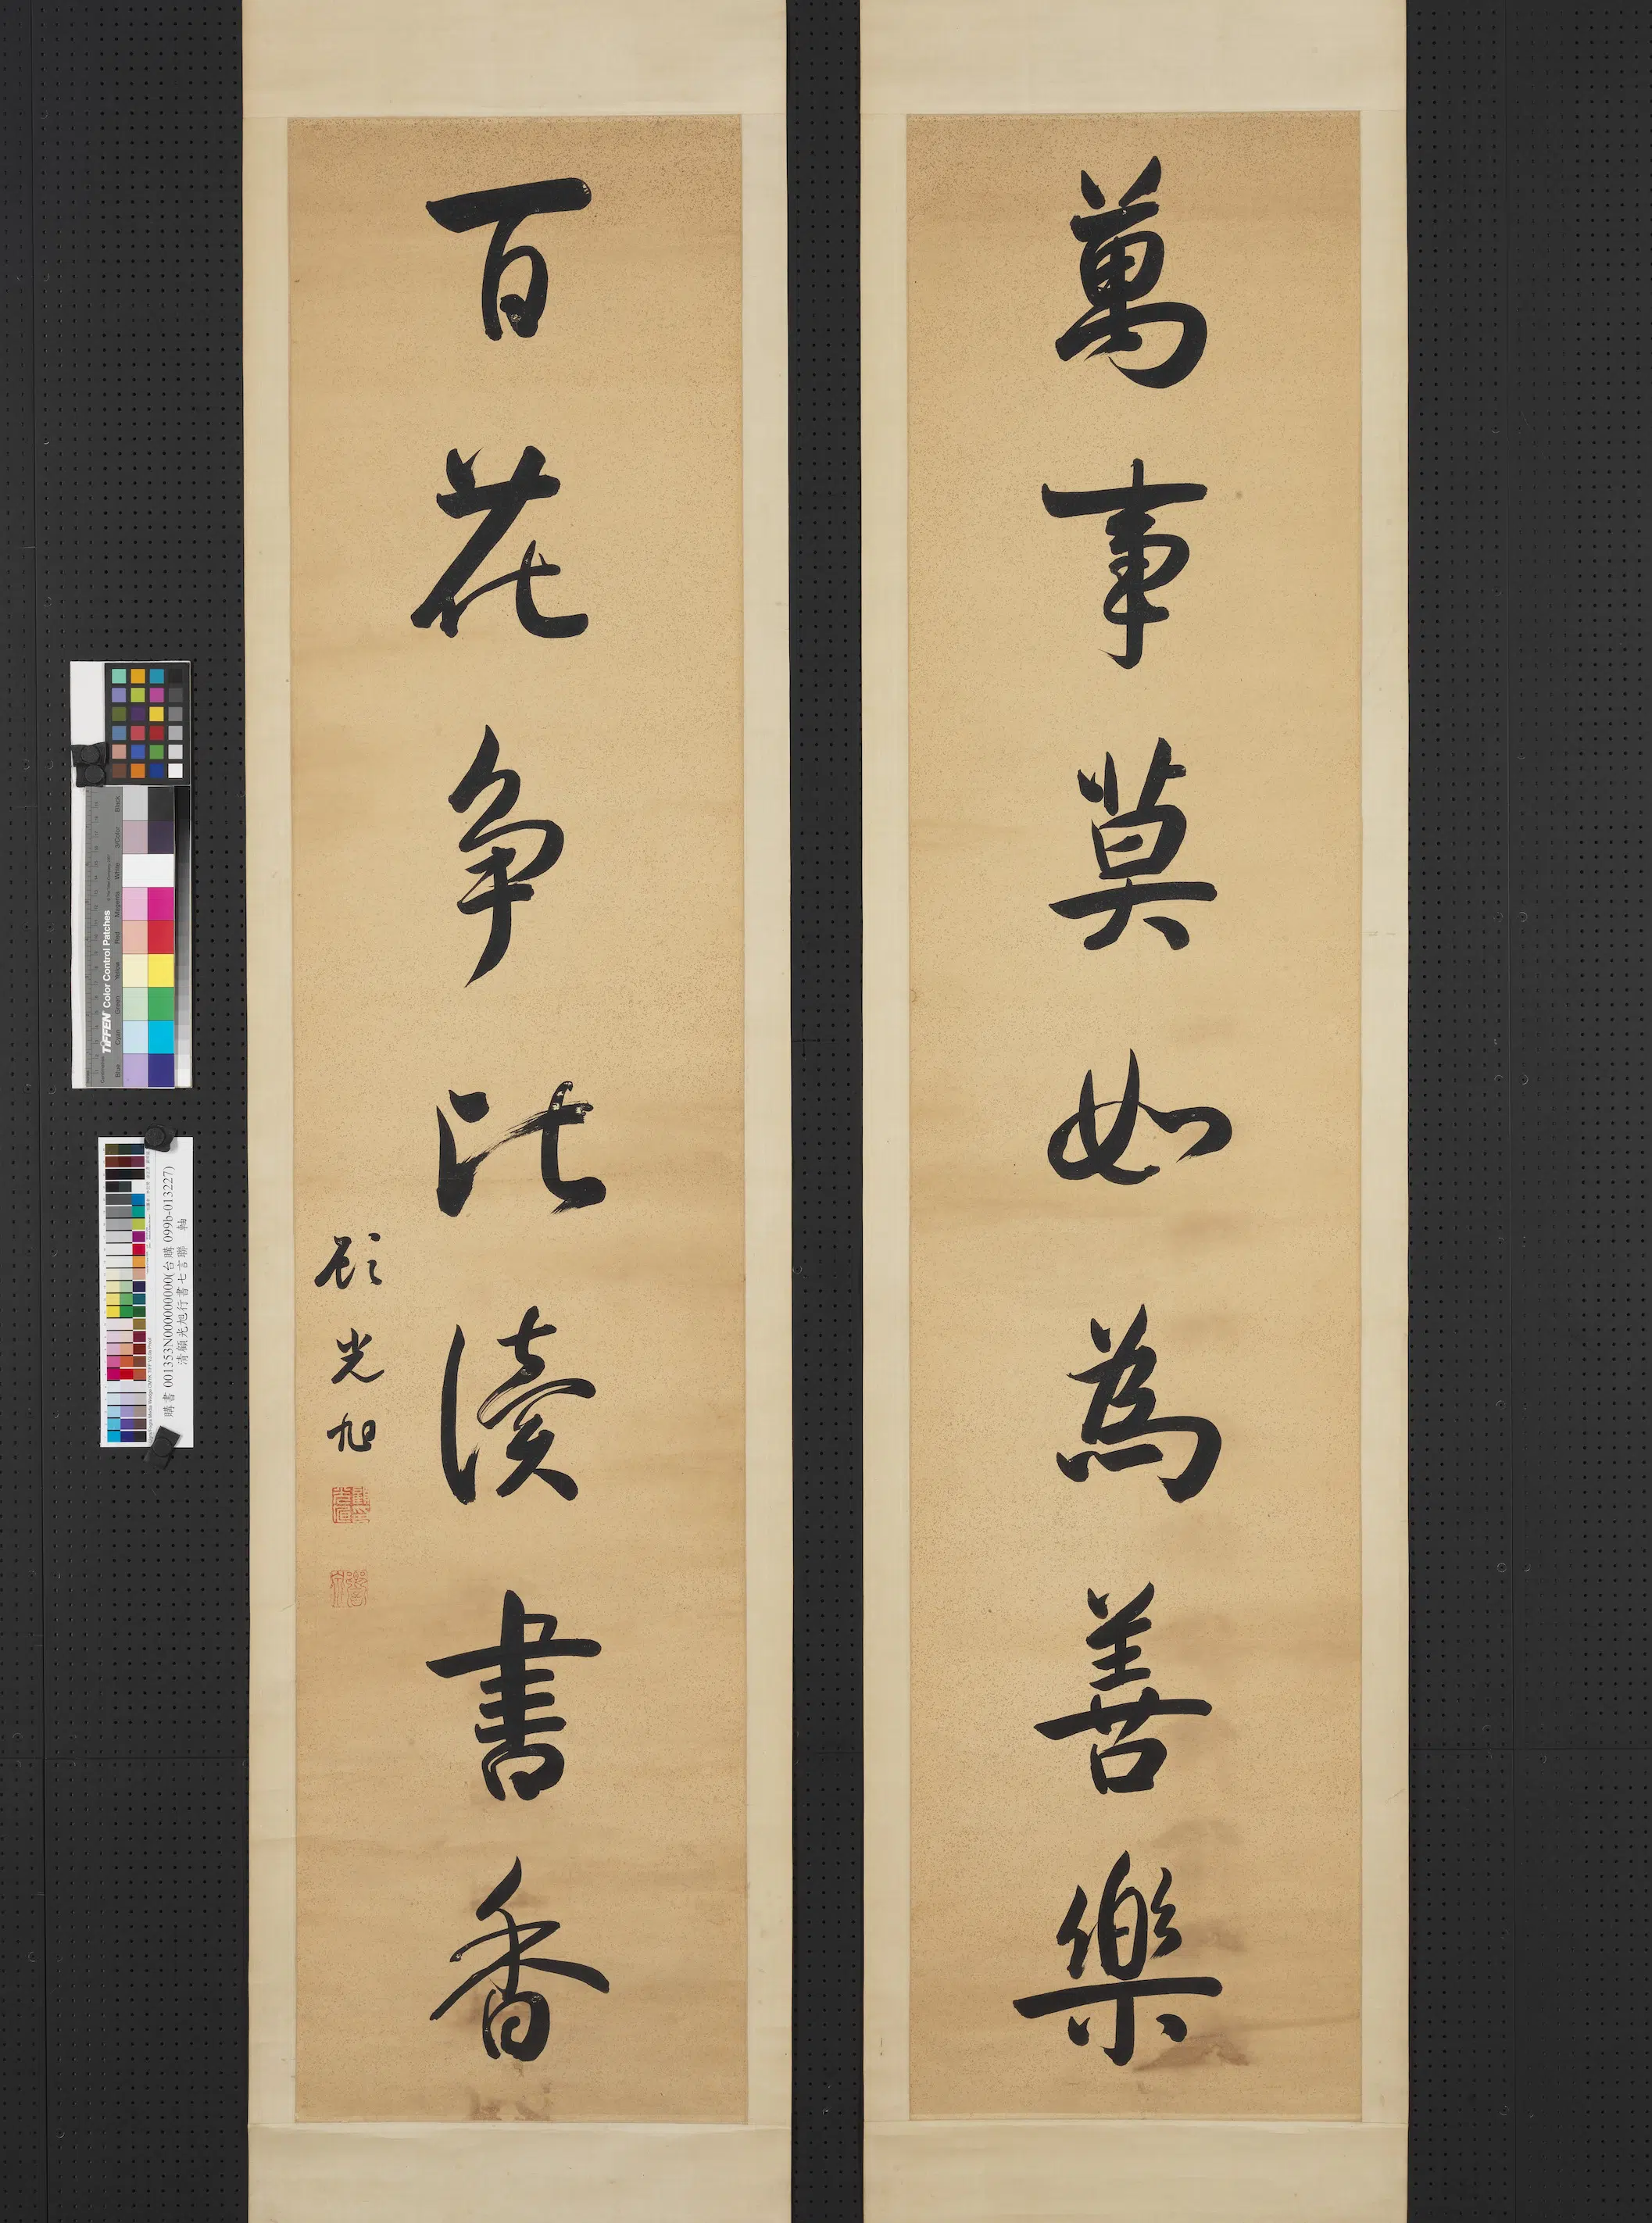 萬事莫如為善樂
百花争比讀書香
顧光旭
TIFFEN Color Control Patches
Blue Cyan Green Yellow Red Magenta White 3/Color Black
購書 001353N000000000(台購 099b-013227)
清顧光旭行書七言聯 軸